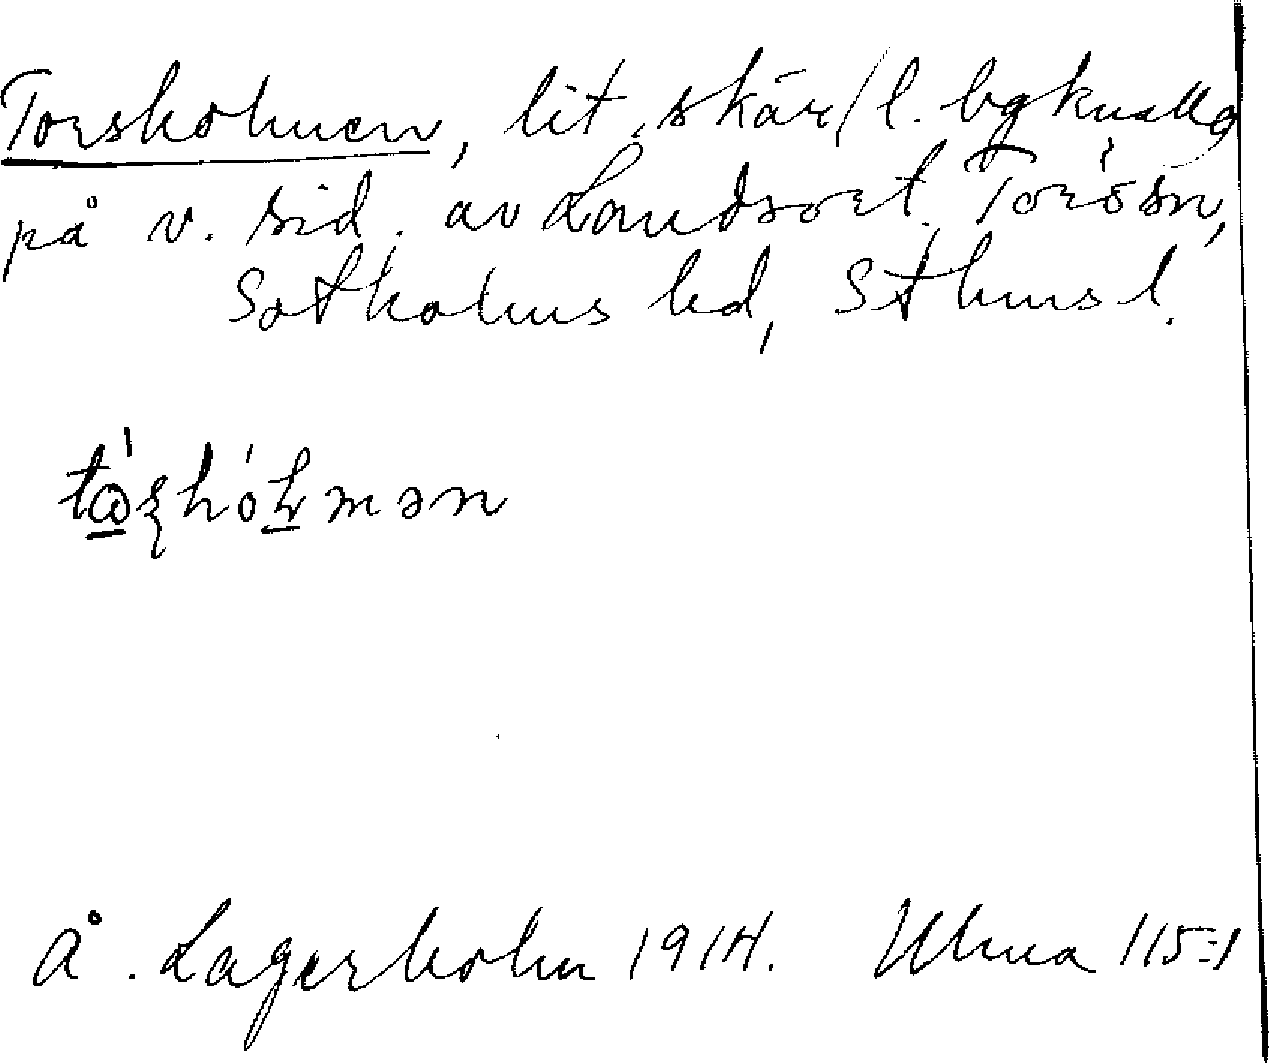 Torskholmen, lit. skär/l. bgknalla
på v. sid. av Landsort. Torö sn,
Sotholms hd, Sthms l.
Å. Lagerholm 1914. Ulma 115:1